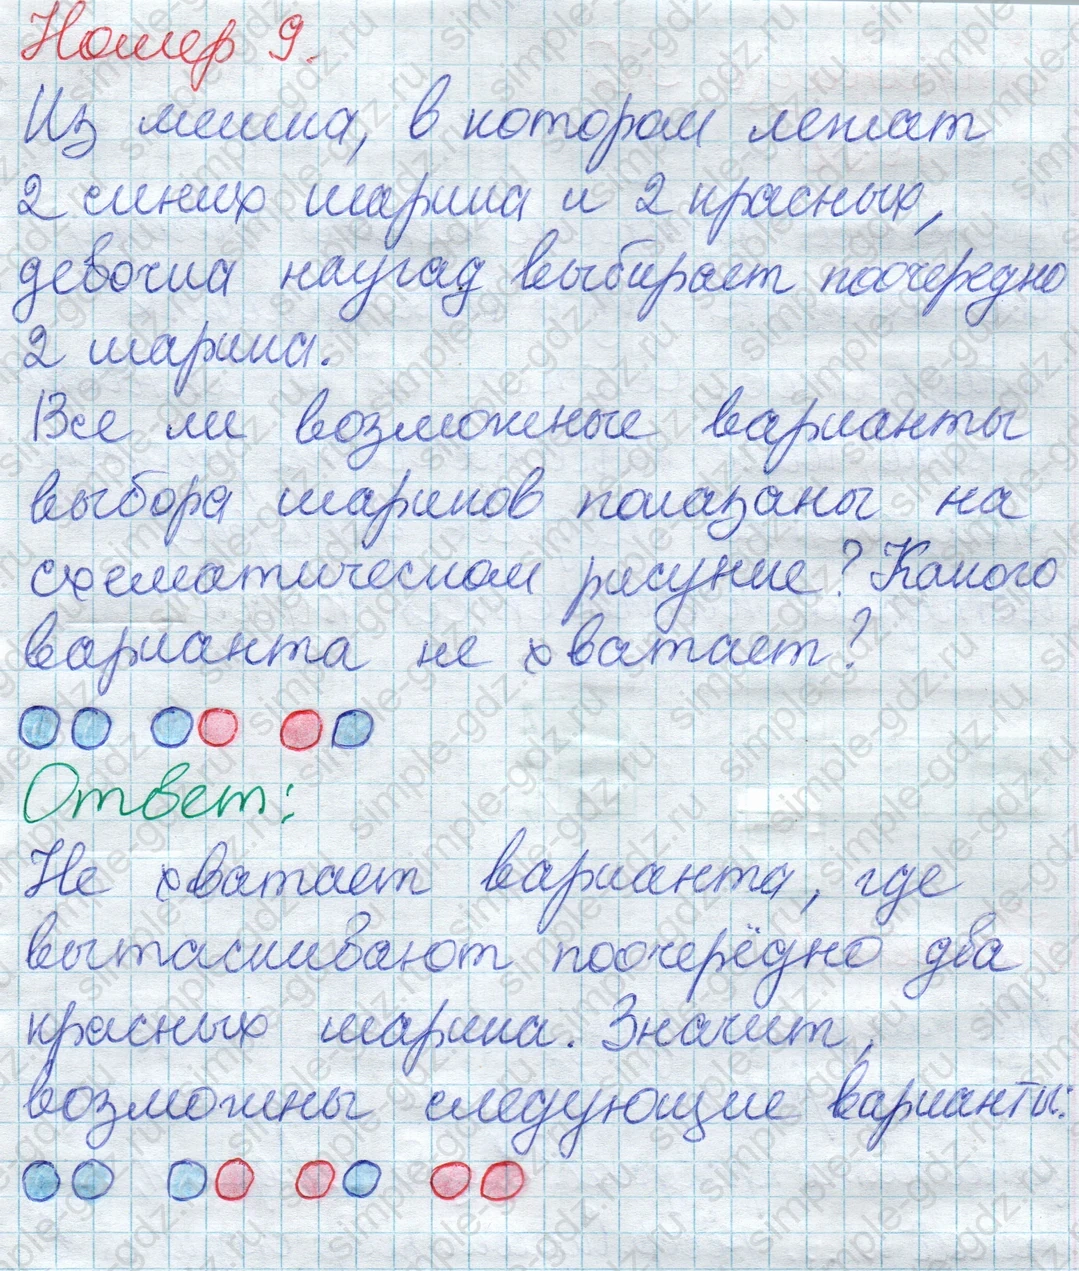 Номер 9.
Из мешка, в котором лежат
2 синих шарика и 2 красных,
девочка наугад выбирает поочередно
2 шарика.
Все ли возможные варианты
выбора шариков показаны на
схематическом рисунке? Какого
варианта не хватает?
Ответ:
Не хватает варианта, где
вытаскивают поочерёдно два
красных шарика. Значит,
возможны следующие варианты:
simple-gdz.ru